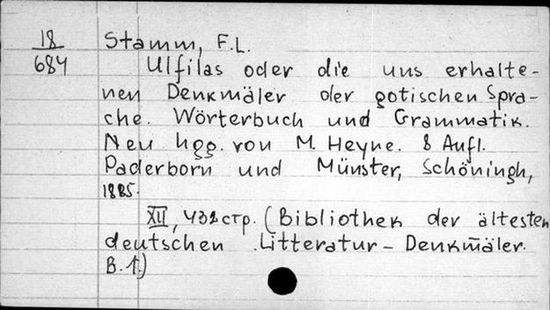 18
684
Stamm, F.L.
Ulfilas oder die uns erhalte-
nen Denkmäler der gotischen Spra-
che. Wörterbuch und Grammatik.
Neu hgg. von M. Heyne. 8 Aufl.
Paderborn und Münster, Schöningh,
1885.
XII, 432 стр. (Bibliothek der ältesten
deutschen Litteratur-Denkmäler.
B. 1.)